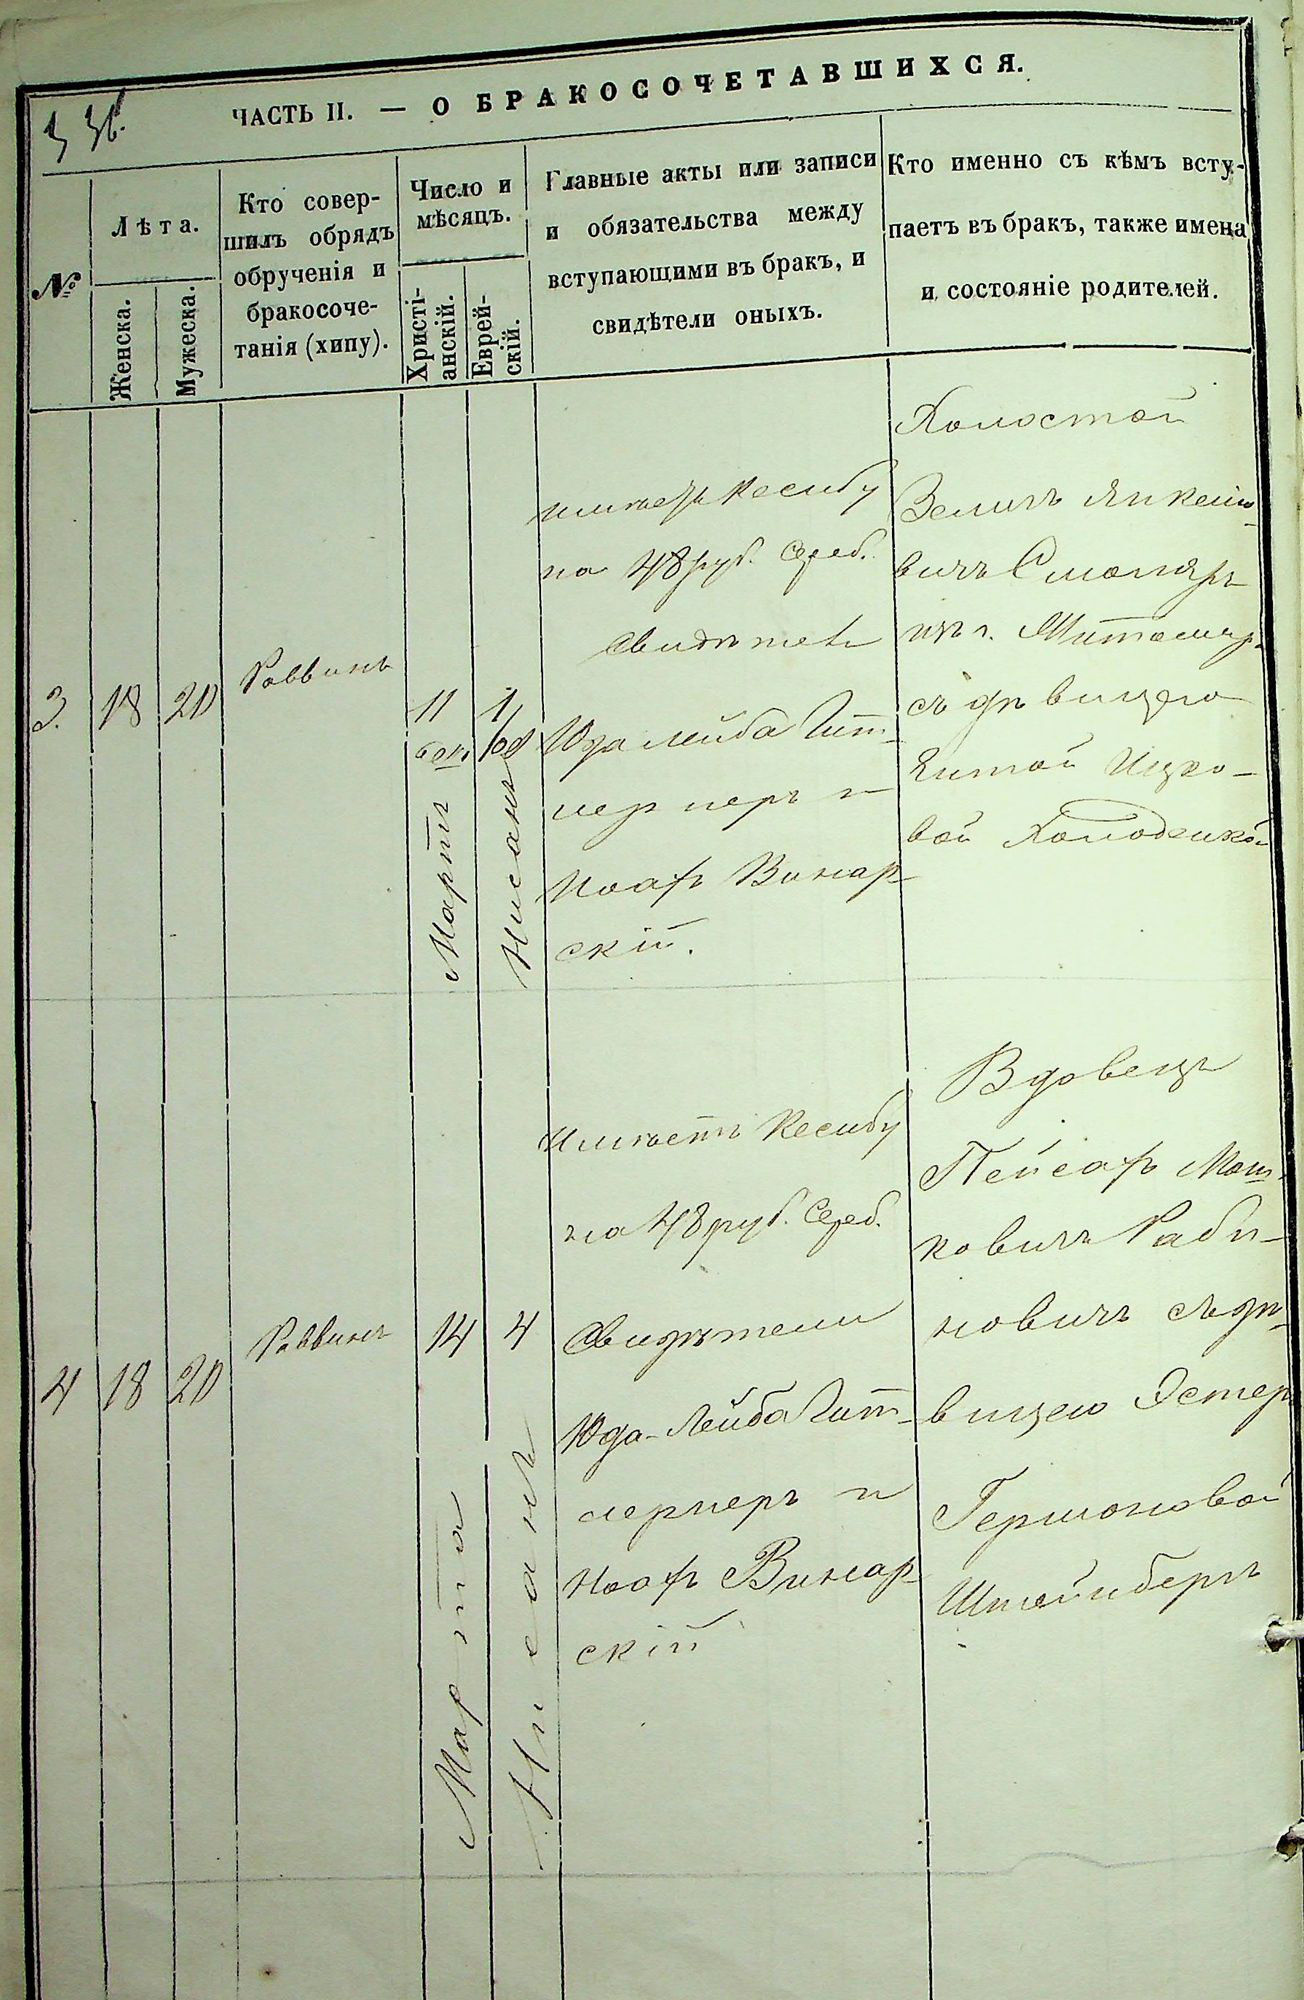 ЧАСТЬ II. — О БРАКОСОЧЕТАВШИХСЯ.
№
Лѣта.
Женска.
Мужеска.
Кто совер-
шилъ обрядъ
обрученія и
бракосоче-
танія (хипу).
Число и
мѣсяцъ.
Христі-
анскій.
Еврей-
скій.
Главные акты или записи
и обязательства между
вступающими въ бракъ, и
свидѣтели оныхъ.
Кто именно съ кѣмъ всту-
паетъ въ бракъ, также имена
и состояніе родителей.
3.
18
20
Раввинъ
11
Мартъ
1
Нисанъ
имѣетъ Кесибу
на 48 руб. Сереб.
Свидѣтели
Юда Лейба Гит-
лернеръ и
Исаакъ Винар-
скій.
Холостой
Зелигъ Янкеліо-
вичъ Смоляръ
изъ г. Житомир.
съ дѣвицею
Хитой Ицко-
вой Холоденкой
4
18
20
Раввинъ
14
Марта
4
Нисанъ
Имѣетъ Кесибу
на 48 руб. Сереб.
Свидѣтели
Юда-Лейба Гит-
лернеръ и
Исаакъ Винар-
скій
Вдовецъ
Пейсахъ Мош-
ковичъ Раби-
новичъ съ дѣ-
вицею Эстер
Гершоновой
Штейнбергъ